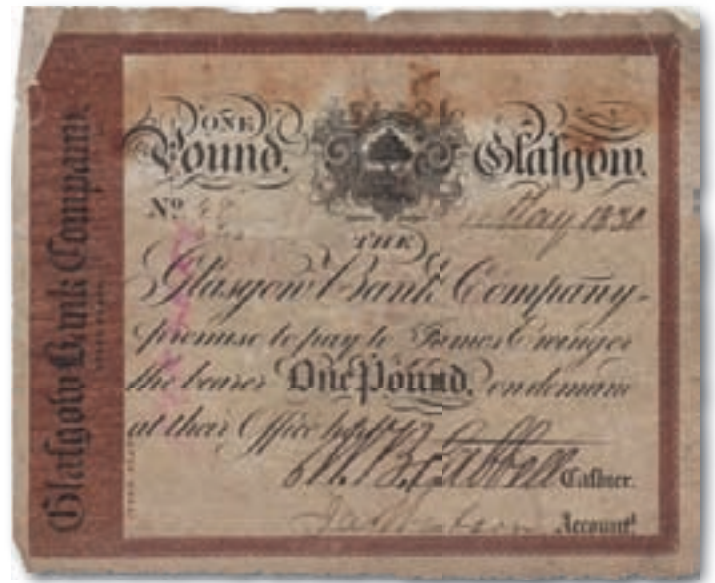 Glaſgow Bank Company.
ONE
Pound.
Glaſgow.
No
May 1830
THE
Glasgow Bank Company
promise to pay to James Ewing or
the bearer One Pound, on demand
at their Office here
Caſhier.
Accountt.